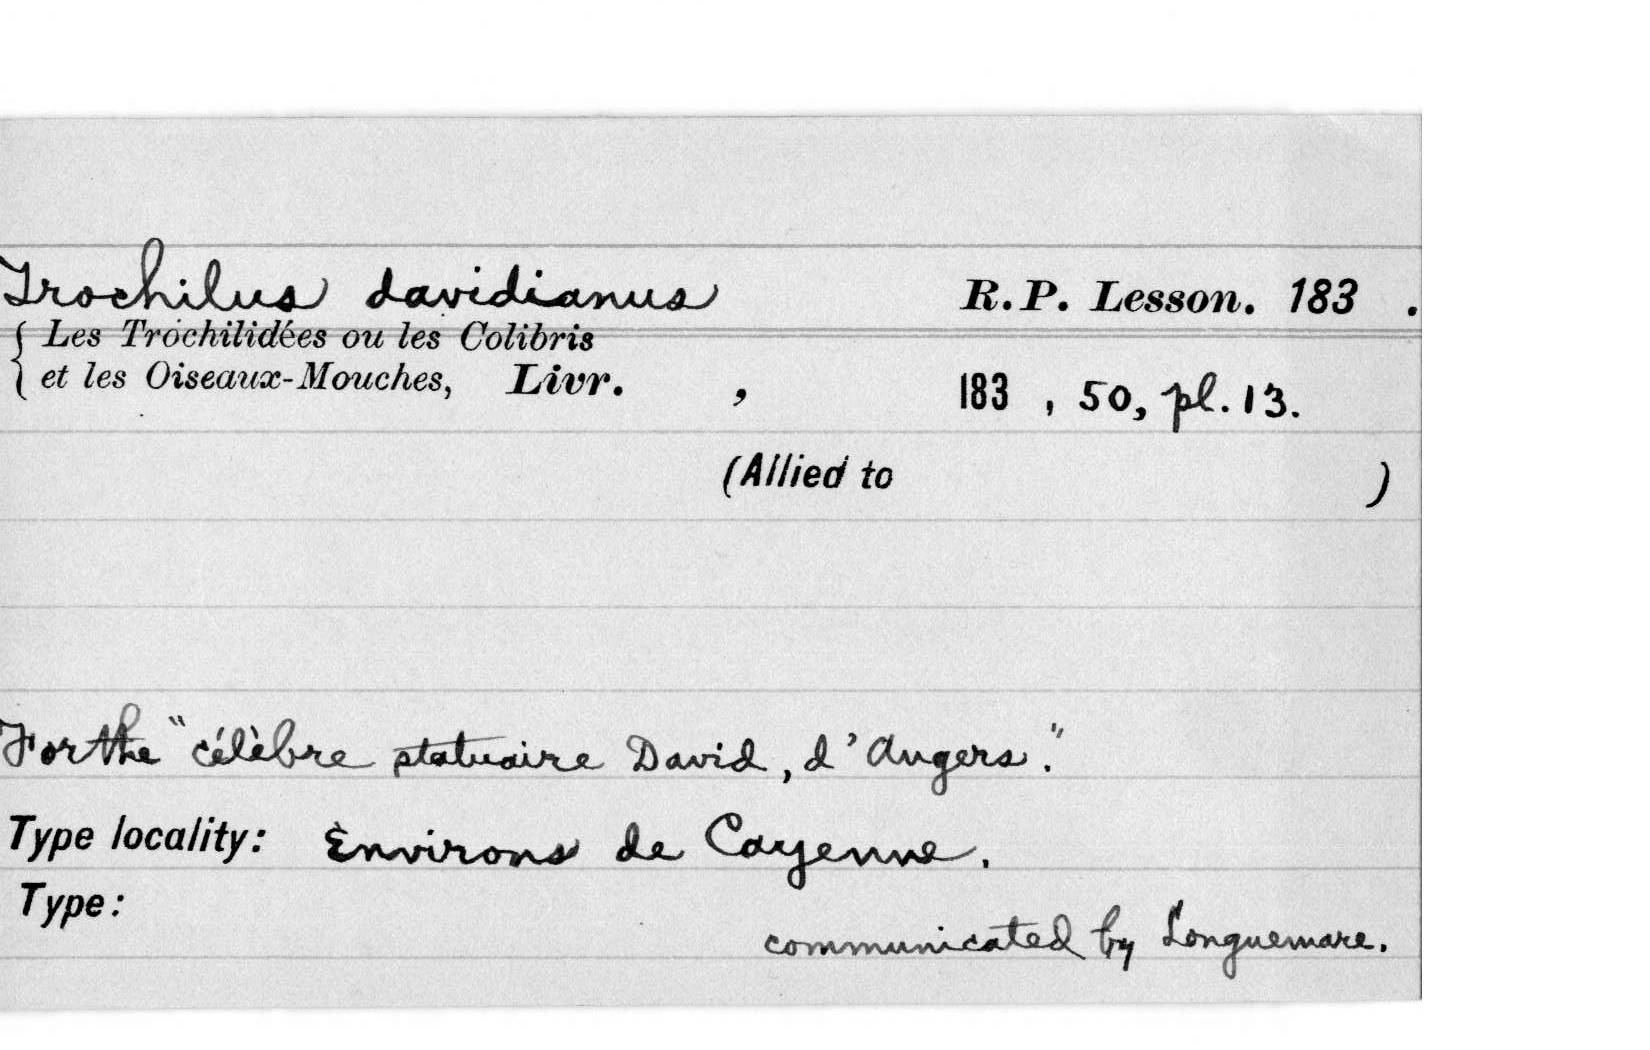 Trochilus davidianus R.P. Lesson. 183 .
{ Les Trochilidées ou les Colibris
et les Oiseaux-Mouches, Livr. , 183 , 50, pl. 13.
(Allied to )
For the "célèbre statuaire David, d'Angers."
Type locality: Environs de Cayenne.
Type:
communicated by Longuemare.